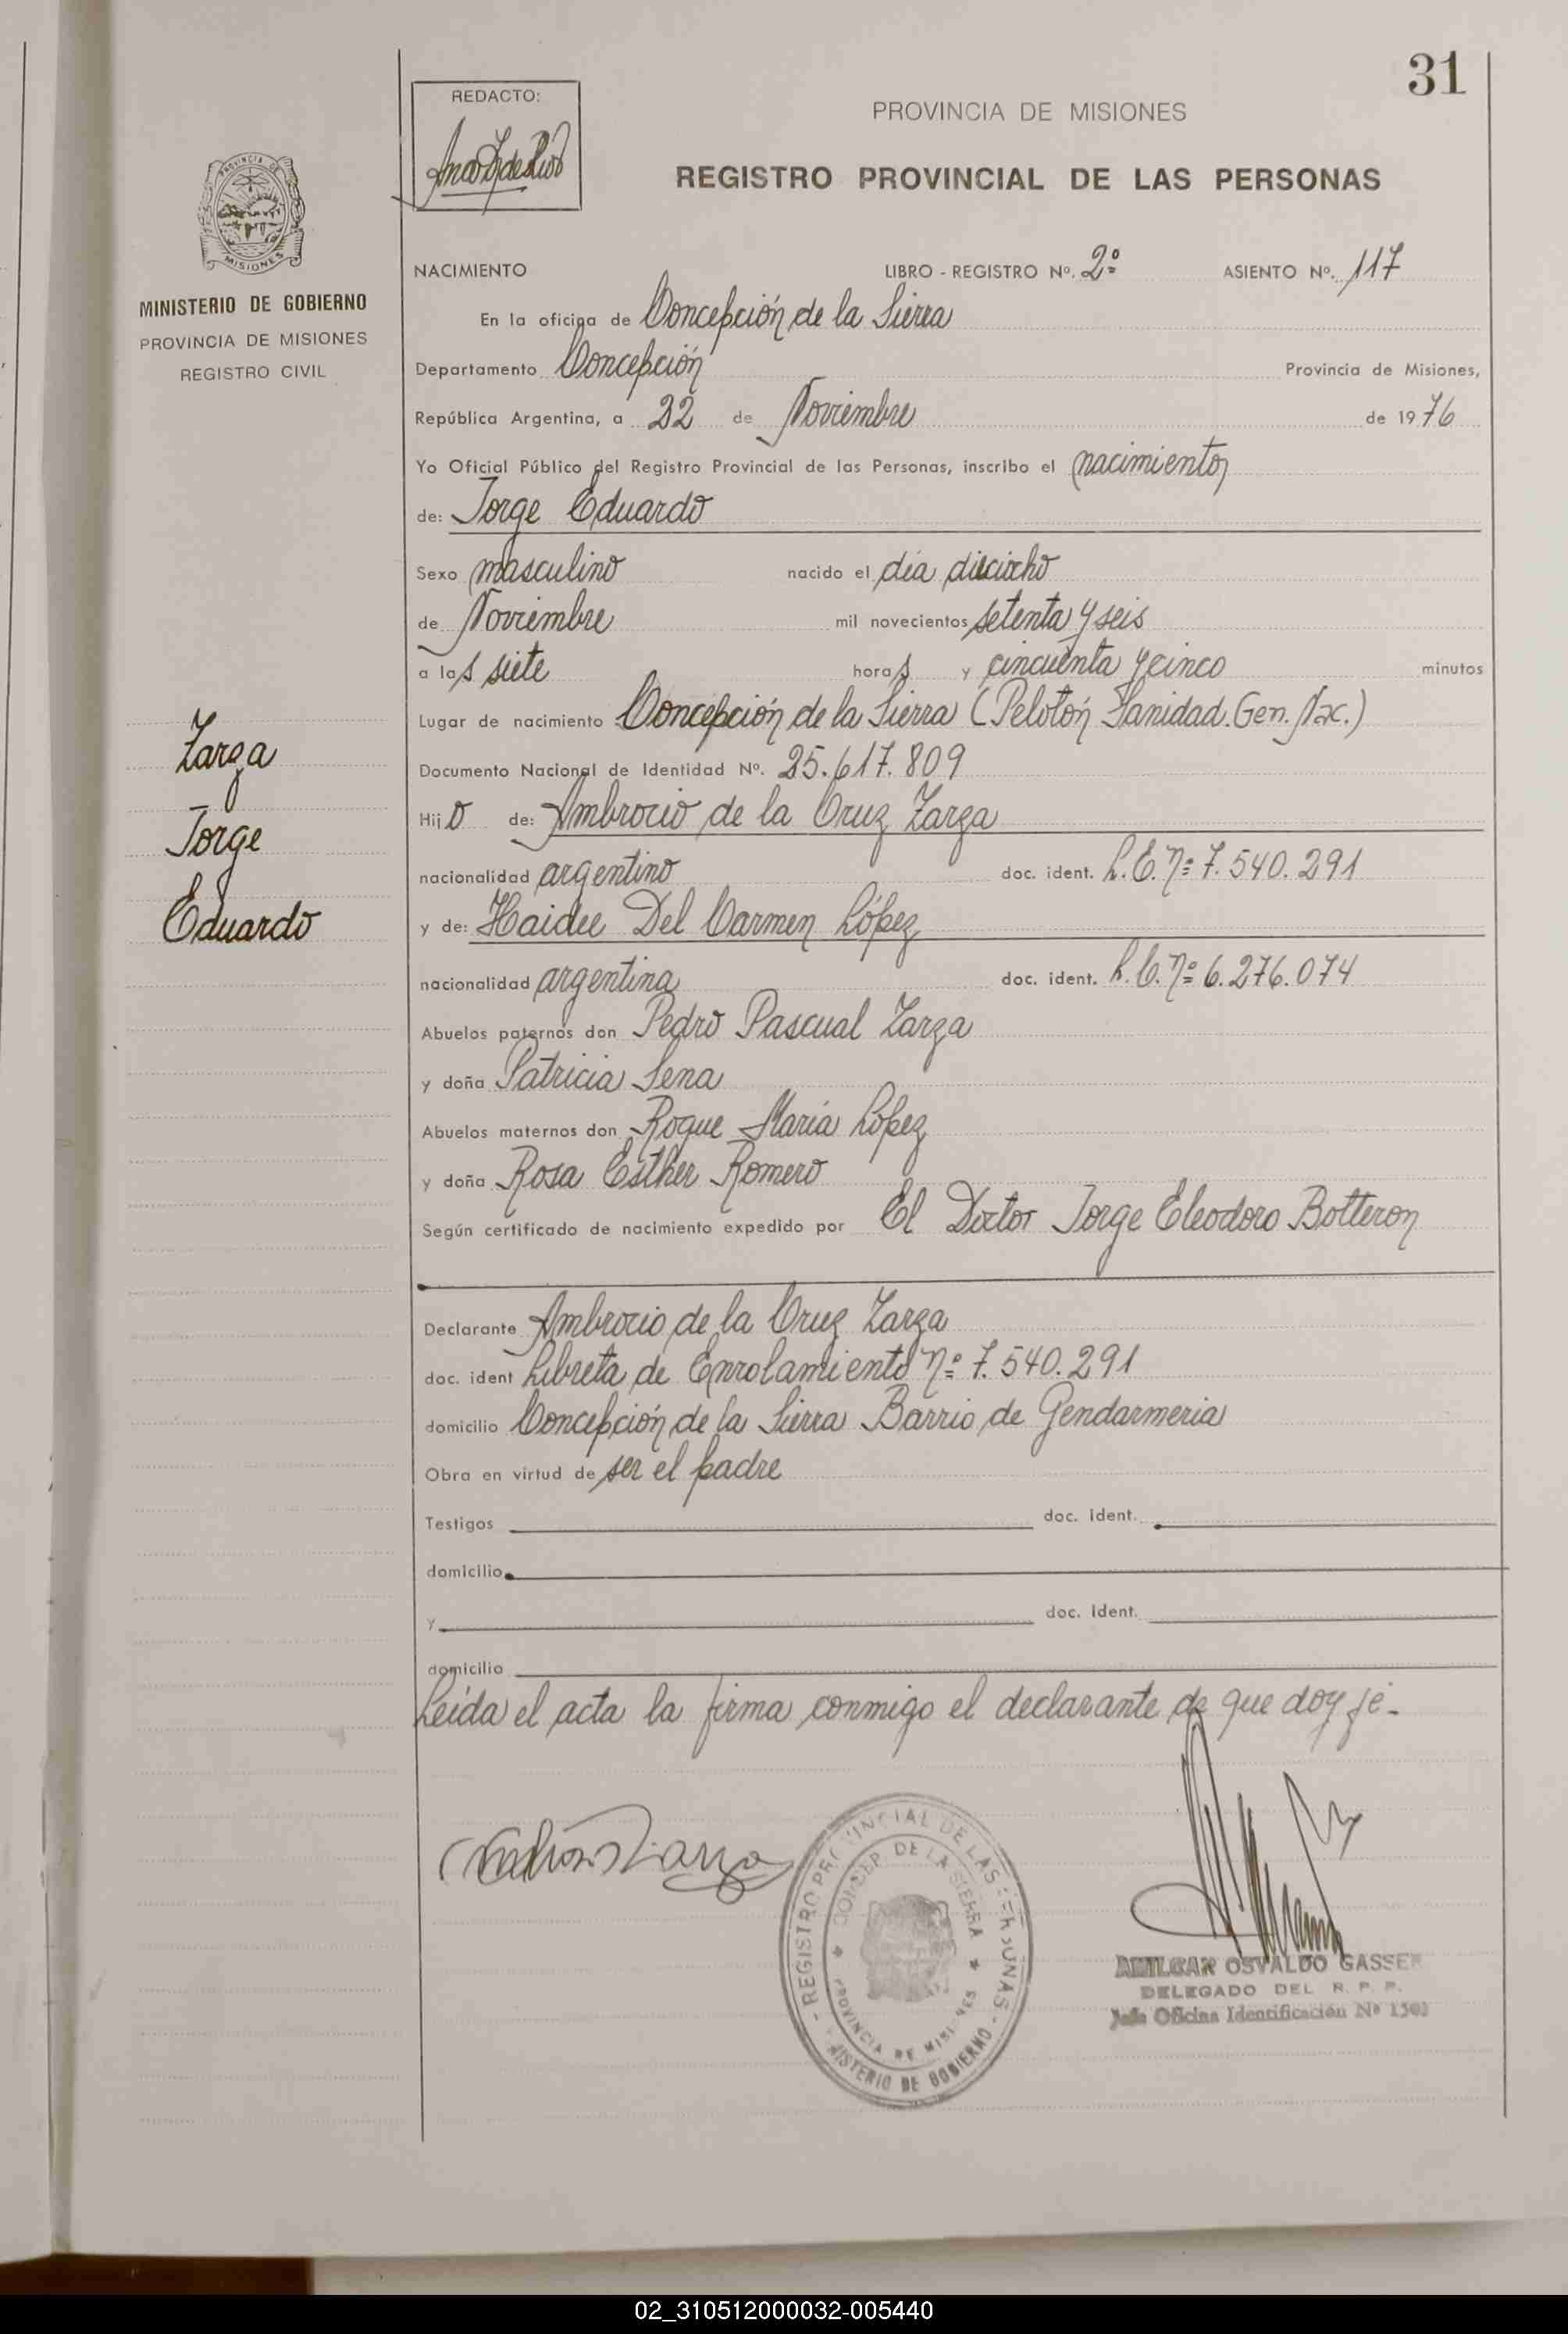 31
REDACTO:
PROVINCIA DE MISIONES
REGISTRO PROVINCIAL DE LAS PERSONAS
PROVINCIA DE
MISIONES
MINISTERIO DE GOBIERNO
PROVINCIA DE MISIONES
REGISTRO CIVIL
NACIMIENTO LIBRO - REGISTRO Nº. 2º ASIENTO Nº. 117
En la oficina de Concepción de la Sierra
Departamento Concepción Provincia de Misiones,
República Argentina, a 22 de Noviembre de 1976
Yo Oficial Público del Registro Provincial de las Personas, inscribo el nacimiento
de: Jorge Eduardo
Sexo masculino nacido el día dieciocho
de Noviembre mil novecientos setenta y seis
a las siete horas y cincuenta y cinco minutos
Lugar de nacimiento Concepción de la Sierra (Pelotón Sanidad. Gen. Nac.)
Documento Nacional de Identidad Nº. 25.617.809
Hijo de: Ambrocio de la Cruz Zarza
nacionalidad argentino doc. ident. L.E. nº 7.540.291
y de: Haidee Del Carmen López
nacionalidad argentina doc. ident. L.C. nº 6.276.074
Abuelos paternos don Pedro Pascual Zarza
y doña Patricia Sena
Abuelos maternos don Roque María López
y doña Rosa Esther Romero
Según certificado de nacimiento expedido por El Doctor Jorge Eleodoro Botteron
Zarza
Jorge
Eduardo
Declarante Ambrocio de la Cruz Zarza
doc. ident Libreta de Enrolamiento nº 7.540.291
domicilio Concepción de la Sierra Barrio de Gendarmeria
Obra en virtud de ser el padre
Testigos doc. ident.
domicilio
y doc. ident.
domicilio
Leída el acta la firma conmigo el declarante de que doy fé-
REGISTRO PROVINCIAL DE LAS PERSONAS - MINISTERIO DE GOBIERNO -
CONCEP. DE LA SIERRA * PROVINCIA DE MISIONES *
AMILCAR OSVALDO GASSER
DELEGADO DEL R. P. P.
Jefe Oficina Identificación Nº 1503
02_310512000032-005440